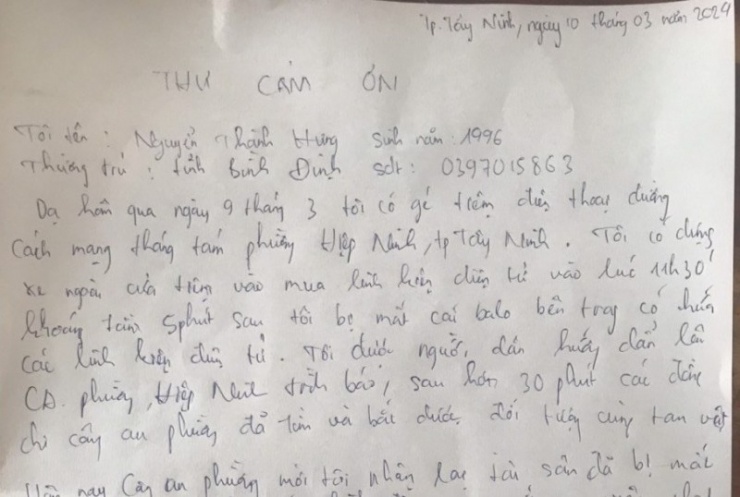 Tp. Tây Ninh, ngày 10 tháng 03 năm 2024
THƯ CẢM ƠN
Tôi tên : Nguyễn Thành Hưng sinh năm : 1996
Thường trú : tỉnh Bình Định sđt : 0397015863
Dạ hôm qua ngày 9 tháng 3 tôi có gé tiệm điện thoại đường
Cách mạng tháng tám phường Hiệp Ninh, tp Tây Ninh. Tôi có dựng
xe ngoài cửa tiệm vào mua linh kiện điện tử vào lúc 11h30'
khoảng tầm 5 phút sau tôi bị mất cái balo bên trong có
các linh kiện điện tử. Tôi được người dân hướng dẫn lên
CA. phường Hiệp Ninh trình báo, sau hơn 30 phút các đồng
chí công an phường đã tìm và bắt được đối tượng cùng tan vật
nay công an phường mời tôi nhận lại tài sản đã bị mất